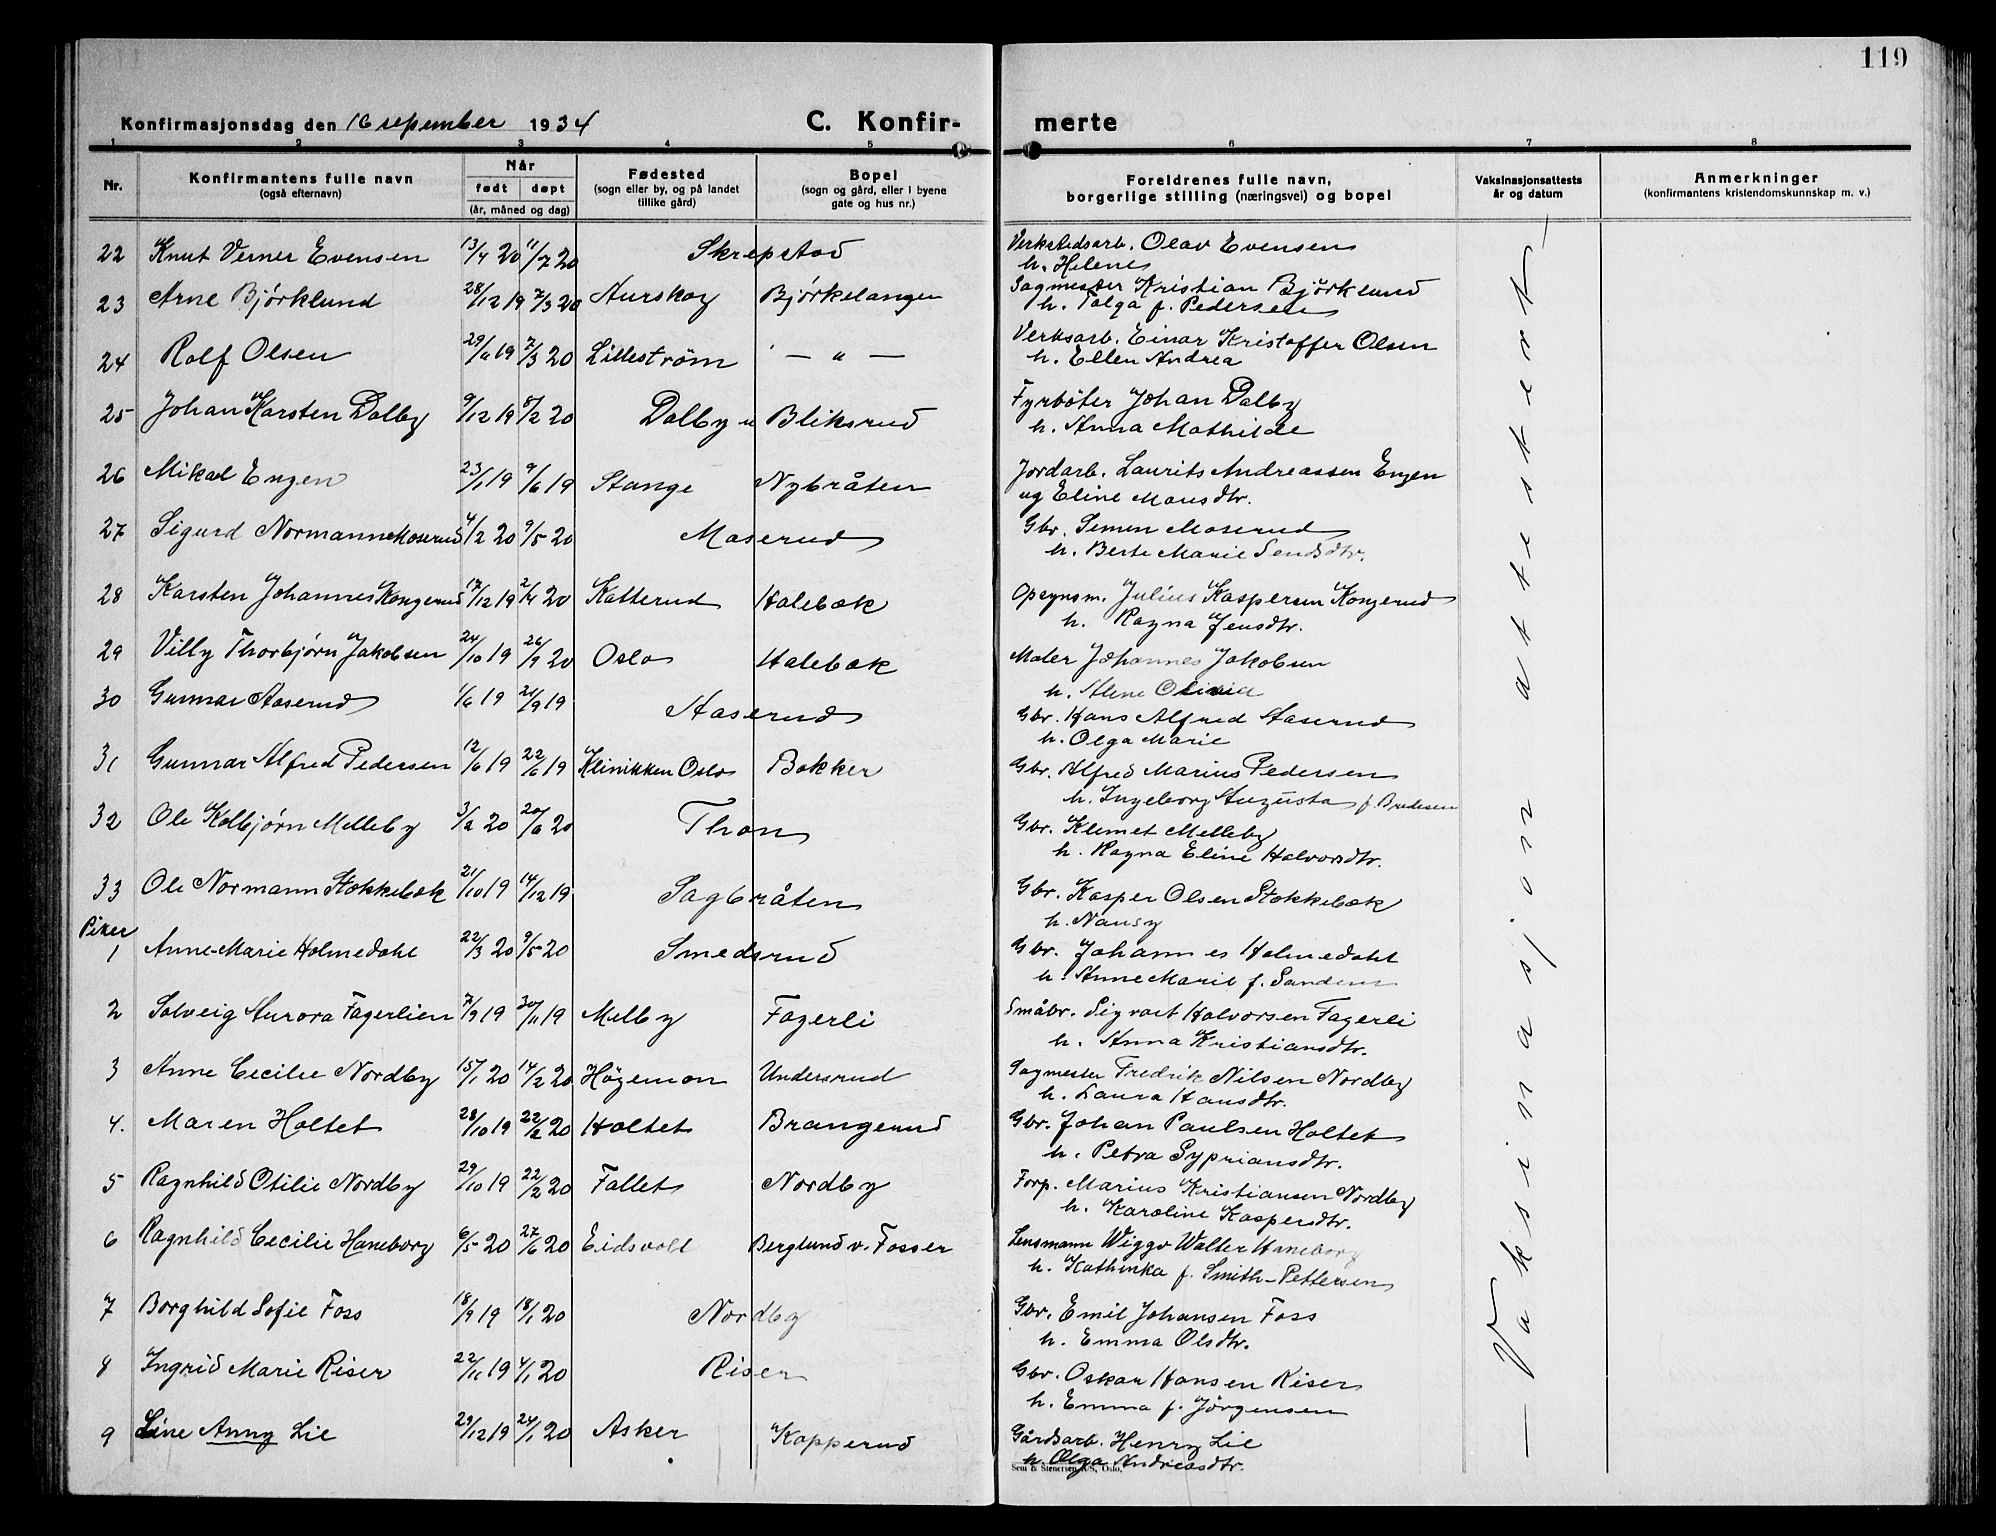 119
Konfirmasjonsdag den 16 sepember 1934 C. Konfir- merte
1 2 3 4 5 6 7 8
Nr. Konfirmantens fulle navn (også efternavn) Når født døpt (år, måned og dag) Fødested (sogn eller by, og på landet tillike gård) Bopel (sogn og gård, eller i byene gate og hus nr.) Foreldrenes fulle navn, borgerlige stilling (næringsvei) og bopel Vaksinasjonsattests år og datum Anmerkninger (konfirmantens kristendomskunnskap m. v.)
22 Knut Verner Evensen 13/4 20 11/7 20 Skrepstad Verkstedsarb. Olav Evensen
h. Helene
23 Arne Bjórklund 28/12 19 7/3 20 Aurskog Bjórkelangen Sagmester Kristian Bjórklund
h. Tolga f. Pedersen
24 Rolf Olsen 29/11 19 7/3 20 Lilleström — " — Verksarb. Einar Kristoffer Olsen
h. Ellen Andrea
25 Johan Karsten Dalby 9/12 19 8/2 20 Dalby u Bliksrud Fyrbóter Johan Dalby
h. Anna Mathilde
26 Mikal Engen 23/1 19 9/6 19 Stange Nybråten Jordarb. Laurits Andreassen Engen
og Eline Monsdtr.
27 Sigurd Normann Moserud 4/2 20 9/5 20 Moserud Gbr. Simen Moserud
h. Berte Marie
28 Karsten Johannes Kongerud 17/12 19 2/4 20 Katterud Halebæk Opsynsm. Julius Kaspersen Kongerud
h. Ragna Jensdtr.
29 Villy Thorbjørn Jakobsen 24/10 19 26/9 20 Oslo Halebæk Maler Johannes Jakobsen
h. Alene Olivia
30 Gunnar Aaserud 1/6 19 21/9 19 Aaserud Gbr. Hans Alfred Aaserud
h. Olga Marie
31 Gunnar Alfred Pedersen 12/6 19 22/6 19 Klinikken Oslo Bakker Gbr. Alfred Marius Pedersen
h. Ingeborg Augusta f. Bredesen
32 Ole Kolbjørn Melleby 3/2 20 20/6 20 Thon Gbr. Klemet Melleby
h. Ragna Eline Halvorsdtr.
33 Ole Normann Stokkebæk 21/10 19 14/12 19 Sagbråten Gbr. Kasper Olsen Stokkebæk
h. Nansy
Piker
1 Anne-Marie Holmedahl 22/3 20 9/5 20 Smedsrud Gbr. Johannes Holmedahl
h. Anne Marie f. Sandem
2 Solveig Aurora Fagerlien 7/9 19 30/11 19 Melby Fagerli Småbr. Sigvart Halvorsen Fagerli
h. Anna Kristiansdtr.
3 Anne Cecilie Nordby 15/1 20 14/2 20 Högemon Undersrud Sagmester Fredrik Nilsen Nordby
h. Laura Hansdtr.
4. Maren Holtet 28/10 19 22/2 20 Holtet Brangerud Gbr. Johan Paulsen Holtet
h. Petra Sypriansdtr.
5 Ragnhild Otilie Nordby 29/10 19 22/2 20 Fallet Nordby Forp. Marius Kristiansen Nordby
h. Karoline Kaspersdtr.
6 Ragnhild Cecilie Haneborg 6/5 20 27/6 20 Eidsvoll Berglund v. Fosser Lensmann Wiggo Walter Haneborg
h. Kathinka f. Smith-Pettersen
7 Borghild Sofie Foss 18/9 19 18/1 20 Nordby Gbr. Emil Johansen Foss
h. Emma Olsdtr.
8 Ingrid Marie Riser 22/11 19 4/1 20 Riser Gbr. Oskar Hansen Riser
h. Emma f. Jörgensen
9 Line Anny Lie 29/12 19 24/1 20 Asker Kopperud Gårdsarb. Henry Lie
h. Olga Andreasdtr.
Sem & Stenersen A/S, Oslo.
— Vaksinasjon attesteret —